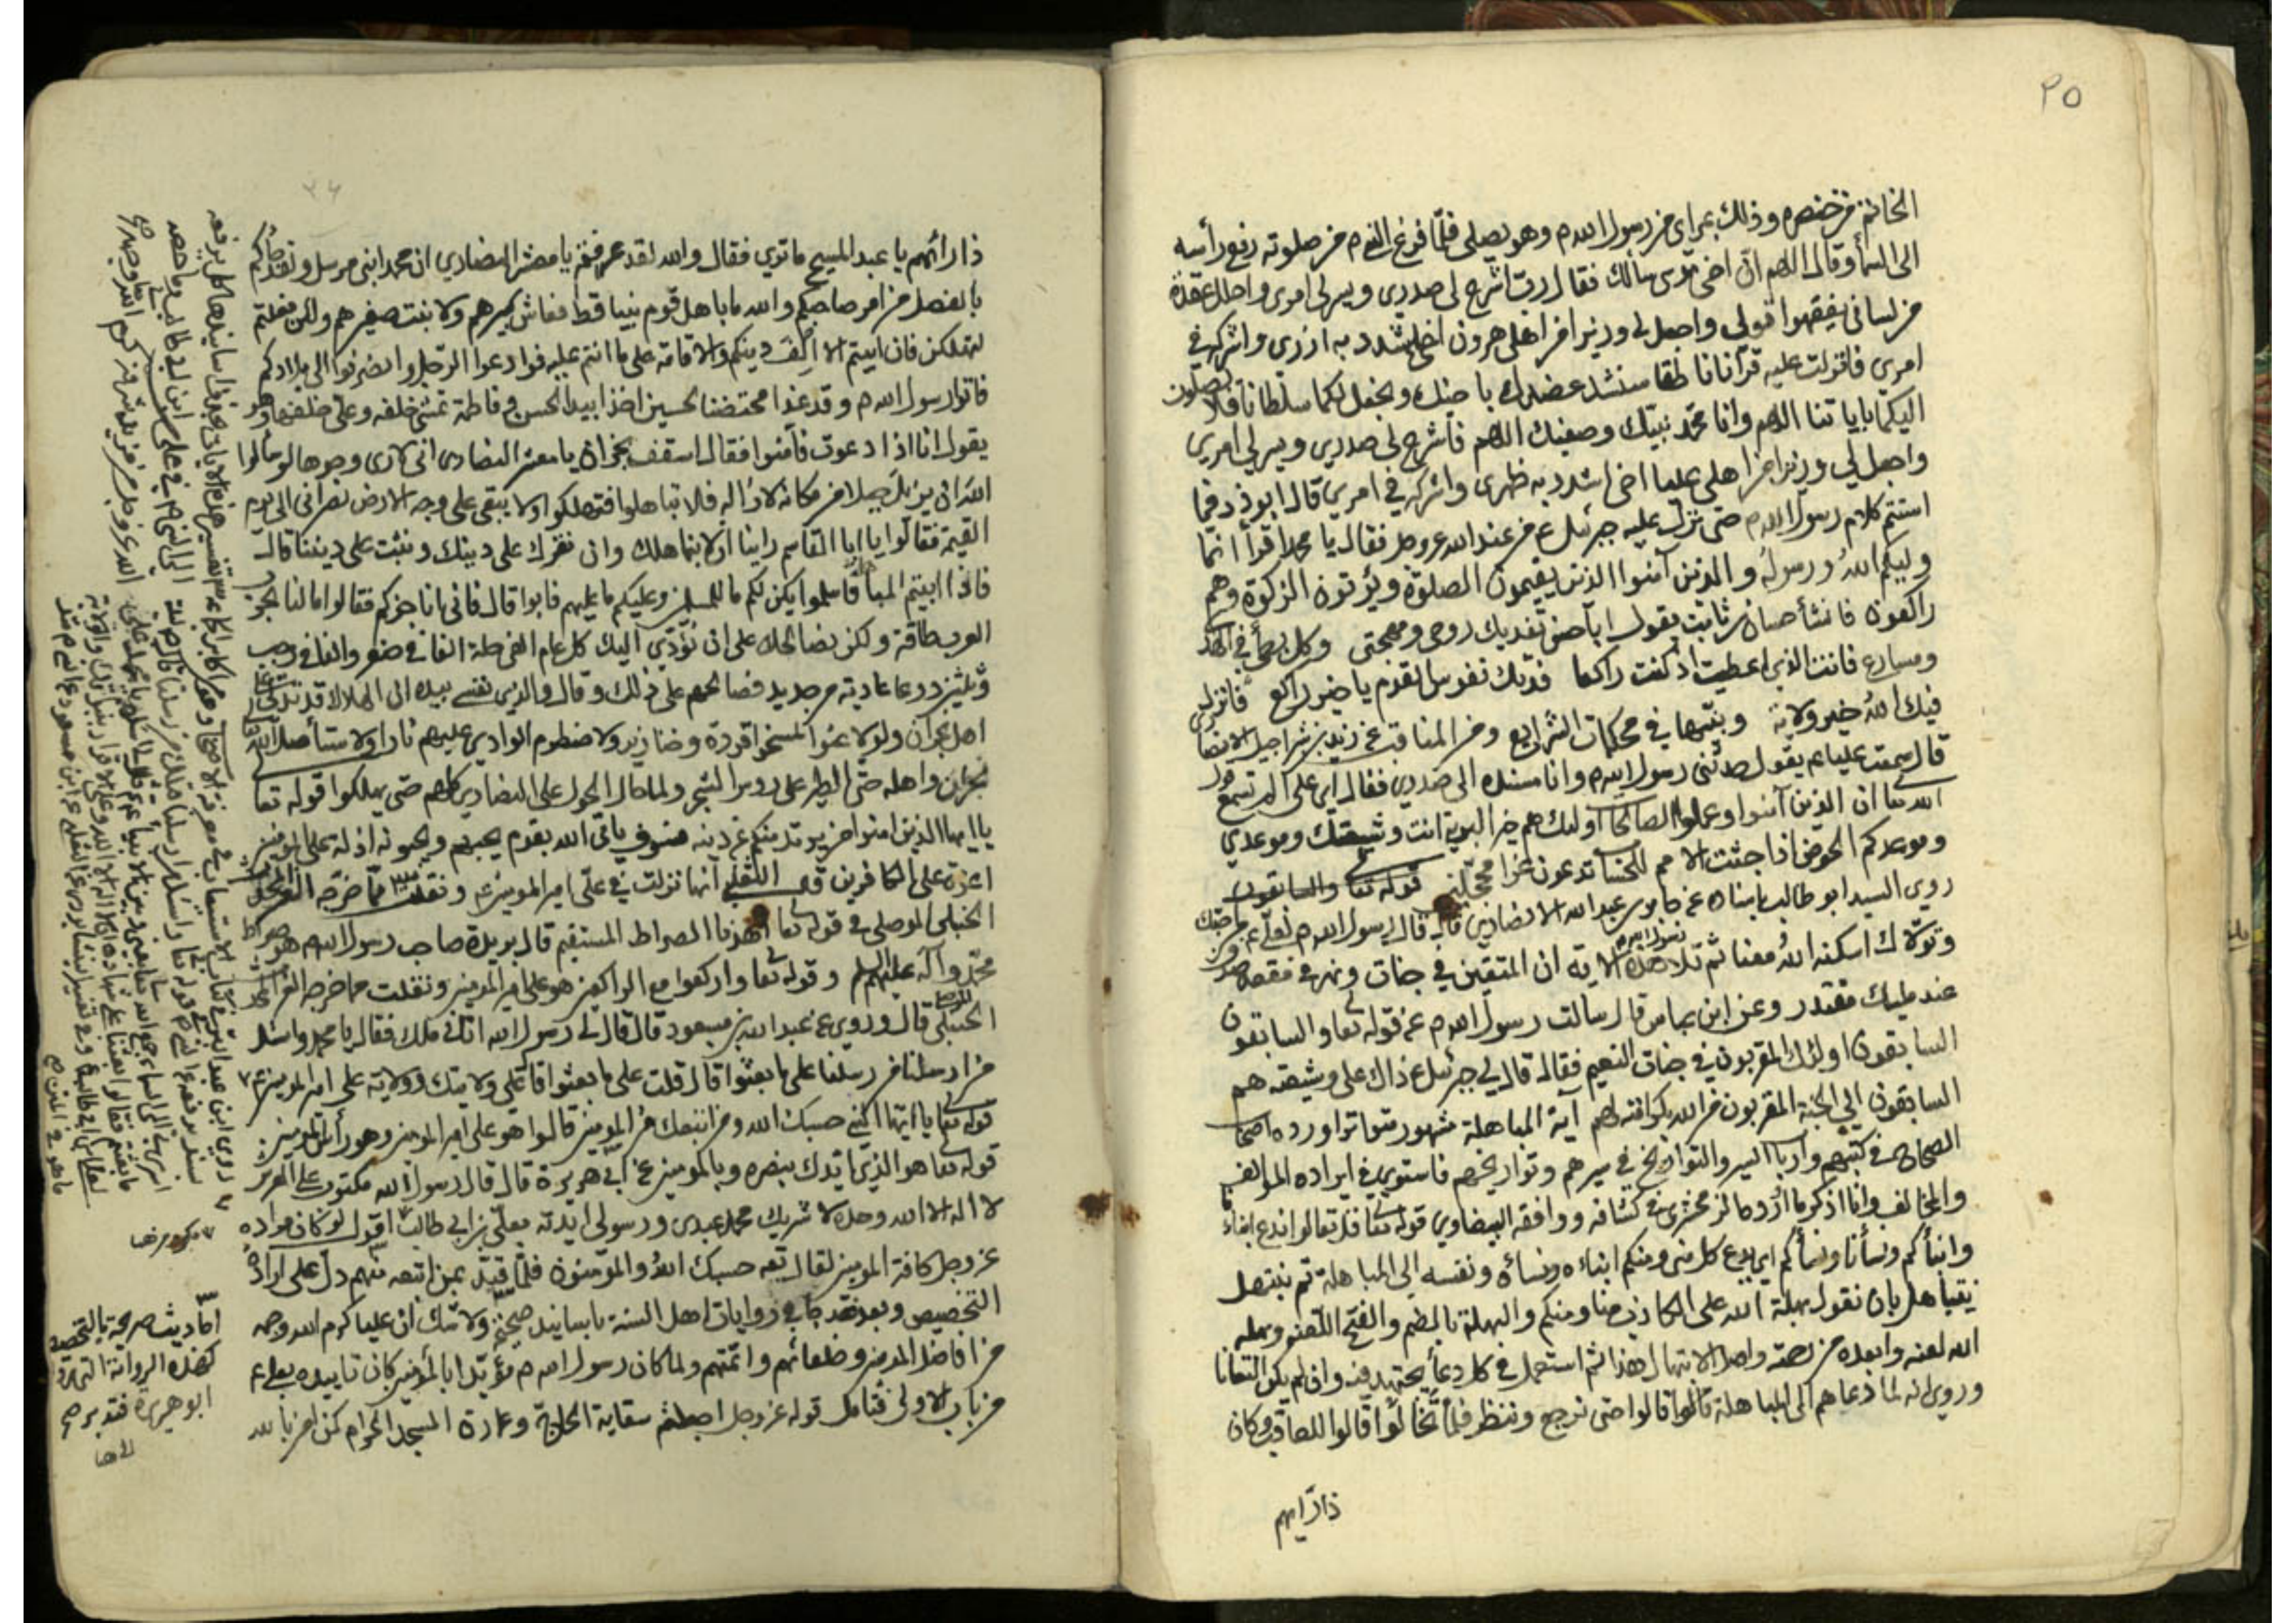 ٢٥
الخاتم من خنصره وذلك بمراى من رسول الله م وهو يصلى فلما فرغ النبى م من صلوته رفع رأسه
الى السماء وقال اللهم ان اخى موسى سالك فقال رب اشرح لى صدرى ويسر لى امرى واحلل عقدة
من لسانى يفقهوا قولى واجعل لى وزيرا من اهلى هرون اخى اشدد به ازرى واشركه فى
امرى فانزلت عليه قرآنا ناطقا سنشد عضدك باخيك ونجعل لكما سلطانا فلا يصلون
اليكما باياتنا اللهم وانا محمد نبيك وصفيك اللهم فاشرح لى صدرى ويسر لى امرى
واجعل لى وزيرا من اهلى عليا اخى اشدد به ظهرى واشركه فى امرى قال ابو ذر فما
استتم كلام رسول الله م حتى نزل عليه جبرئيل ع من عند الله عز وجل فقال يا محمد اقرأ انما
وليكم الله ورسوله والذين آمنوا الذين يقيمون الصلوة ويؤتون الزكوة وهم
راكعون فانشأ حسان بن ثابت يقول ابا حسن تفديك روحى ومهجتى وكل بطئ فى الهدى
ومسارع فانت الذى اعطيت اذ كنت راكعا فدتك نفوس القوم يا خير راكع فانزل
فيك الله خير ولاية وبينها فى محكمات الشرايع ومن المناقب عن زيد بن شراحيل الانصارى
قال سمعت عليا ع يقول حدثنى رسول الله م وانا مسنده الى صدرى فقال اى على الم تسمع قول
الله تعا ان الذين آمنوا وعملوا الصالحات اولئك هم خير البرية انت وشيعتك وموعدى
وموعدكم الحوض اذا جثت الامم للحساب تدعون غرا محجلين قوله تعا والسابقون
روى السيد ابو طالب باسناده عن جابر بن عبد الله الانصارى قال قال رسول الله م لعلى ع من احبك
وتولاك اسكنه الله معنا ثم تلا رسول الله م هذه الاية ان المتقين فى جنات ونهر فى مقعد صدق
عند مليك مقتدر وعن ابن عباس قال سالت رسول الله م عن قوله تعا والسابقون
السابقون اولئك المقربون فى جنات النعيم فقال قال لى جبرئيل ع ذاك على وشيعته هم
السابقون الى الجنة المقربون من الله بكرامته لهم آية المباهلة مشهور متواترا اورده اصحاب
الصحاح فى كتبهم وارباب السير والتواريخ فى سيرهم وتواريخهم فاستوى فى ايراده المؤالف
والمخالف وانا اذكر ما اورده الزمخشرى فى كشافه ووافقه البيضاوى قوله تعا قل تعالوا ندع ابناءنا
وابنأكم ونسأنا ونسأكم اى يدع كل منى ومنكم ابناءه ونسأه ونفسه الى المباهلة ثم نبتهل
نتباهل بان نقول بهلة الله على الكاذب منا ومنكم والبهلة بالضم والفتح اللعنة وبهله
الله لعنه وابعده من رحمته واصل الابتهال هذا ثم استعمل فى كل دعأ يجتهد فيه وان لم يكن التعانا
وروى انه لما دعاهم الى المباهلة قالوا حتى نرجع وننظر فلما تخالوا قالوا للعاقب وكان
ذا رأيهم
ذا رأيهم يا عبد المسيح ما ترى فقال والله لقد عرفتم يا معشر النصارى ان محمدا نبى مرسل ولقد جاءكم
بالفصل من امر صاحبكم والله ما باهل قوم نبيا قط فعاش كبيرهم ولا نبت صغيرهم ولئن فعلتم
لتهلكن فان ابيتم الا الف دينكم والاقامة على ما انتم عليه فوادعوا الرجل وانصرفوا الى بلادكم
فاتوا رسول الله م وقد غدا محتضنا الحسين اخذا بيد الحسن وفاطمة تمشى خلفه وعلى خلفها وهو
يقول انا اذا دعوت فآمنوا فقال اسقف نجران يا معشر النصارى انى لارى وجوها لو سألوا
الله ان يزيل جبلا من مكانه لازاله فلا تباهلوا فتهلكوا ولا يبقى على وجه الارض نصرانى الى يوم
القيمة فقالوا يا ابا القاسم راينا ان لا نباهلك وان نقرك على دينك ونثبت على ديننا قال
فاذا ابيتم المباهلة فاسلموا يكن لكم ما للمسلمين وعليكم ما عليهم فابوا قال فانى اناجزكم فقالوا ما لنا بحرب
العرب طاقة ولكن نصالحك على ان نؤدى اليك كل عام الفى حلة الفا فى صفر والفا فى رجب
وثلثين درعا عادية من حديد فصالحهم على ذلك وقال والذى نفسى بيده ان الهلاك قد تدلى على
اهل نجران ولو لاعنوا لمسخوا قردة وخنازير ولاضطرم الوادى عليهم نارا ولاستأصل الله
نجران واهله حتى الطير على رؤس الشجر ولما حال الحول على النصارى كلهم حتى يهلكوا قوله تعا
يا ايها الذين امنوا من يرتد منكم عن دينه فسوف ياتى الله بقوم يحبهم ويحبونه اذلة على المؤمنين
اعزة على الكافرين قال الثعلبى انها نزلت فى على امير المؤمنين ع ونقلت مما خرجه العز المحدث
الحنبلى الموصلى فى قوله تعا اهدنا الصراط المستقيم قال بريدة صاحب رسول الله م هو صراط
محمد وآله عليهم السلم وقوله تعا واركعوا مع الراكعين هو على امير المؤمنين ونقلت مما خرجه العز المحدث
الحنبلى قال وروى عن عبد الله بن مسعود قال قال لى رسول الله اتانى ملك فقال يا محمد واسئل
من ارسلنا من رسلنا على ما بعثوا قال قلت على ما بعثوا قال على ولايتك وولاية على امير المؤمنين ع
قوله تعا يا ايها النبى حسبك الله ومن اتبعك من المؤمنين قالوا هو على امير المؤمنين وهو رأس المؤمنين
قوله تعا هو الذى ايدك بنصره وبالمؤمنين عن ابى هريرة قال قال رسول الله مكتوب على العرش
لا اله الا الله وحده لا شريك محمد عبدى ورسولى ايدته بعلى بن ابى طالب اقول لو كان مراده
عز وجل كافة المؤمنين لقال تعه حسبك الله والمؤمنون فلما قيد بمن اتبعه منهم دل على ارادة
التخصيص وبعد فقد جاء فى روايات اهل السنة باسانيد صحيحة ولا شك ان عليا كرم الله وجهه
من افاضل المؤمنين وخلفائهم وائمتهم ولما كان رسول الله م مؤيدا بالمؤمنين كان تاييده بعلى ع
من باب الاولى فتامل قوله عز وجل اجعلتم سقاية الحاج وعمارة المسجد الحرام كمن امن بالله
احاديث صريحة بالتخصيص
كهذه الرواية التى رواها
ابو هريرة فتدبر صح